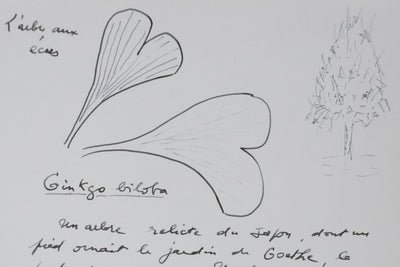 L'arbre aux
écus
Ginkgo biloba
un arbre relicte du Japon, dont un
pied ornait le jardin de Goethe, le